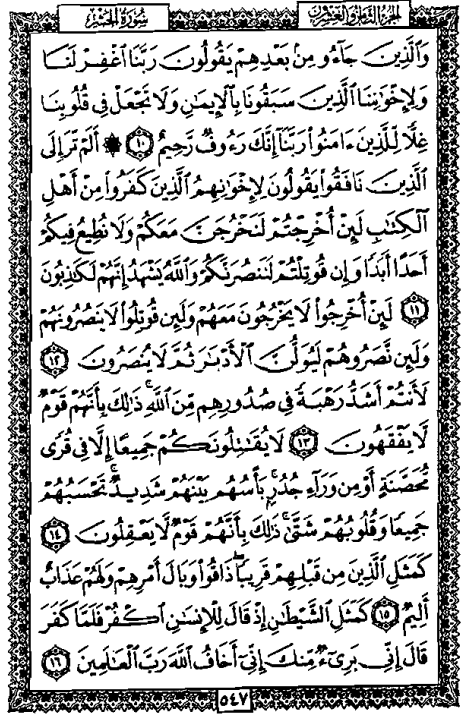 الجزء الثامن والعشرون سورة الحشر
وَالَّذِينَ جَاءُو مِنْ بَعْدِهِمْ يَقُولُونَ رَبَّنَا اغْفِرْ لَنَا
وَلِإِخْوَانِنَا الَّذِينَ سَبَقُونَا بِالْإِيمَانِ وَلَا تَجْعَلْ فِي قُلُوبِنَا
غِلًّا لِلَّذِينَ ءَامَنُوا رَبَّنَا إِنَّكَ رَءُوفٌ رَحِيمٌ ١٠ ۞ أَلَمْ تَرَ إِلَى
الَّذِينَ نَافَقُوا يَقُولُونَ لِإِخْوَانِهِمُ الَّذِينَ كَفَرُوا مِنْ أَهْلِ
الْكِتَابِ لَئِنْ أُخْرِجْتُمْ لَنَخْرُجَنَّ مَعَكُمْ وَلَا نُطِيعُ فِيكُمْ
أَحَدًا أَبَدًا وَإِنْ قُوتِلْتُمْ لَنَنْصُرَنَّكُمْ وَاللَّهُ يَشْهَدُ إِنَّهُمْ لَكَاذِبُونَ
١١ لَئِنْ أُخْرِجُوا لَا يَخْرُجُونَ مَعَهُمْ وَلَئِنْ قُوتِلُوا لَا يَنْصُرُونَهُمْ
وَلَئِنْ نَصَرُوهُمْ لَيُوَلُّنَّ الْأَدْبَارَ ثُمَّ لَا يُنْصَرُونَ ١٢
لَأَنْتُمْ أَشَدُّ رَهْبَةً فِي صُدُورِهِمْ مِنَ اللَّهِ ذَٰلِكَ بِأَنَّهُمْ قَوْمٌ
لَا يَفْقَهُونَ ١٣ لَا يُقَاتِلُونَكُمْ جَمِيعًا إِلَّا فِي قُرًى
مُحَصَّنَةٍ أَوْ مِنْ وَرَاءِ جُدُرٍ بَأْسُهُمْ بَيْنَهُمْ شَدِيدٌ تَحْسَبُهُمْ
جَمِيعًا وَقُلُوبُهُمْ شَتَّىٰ ذَٰلِكَ بِأَنَّهُمْ قَوْمٌ لَا يَعْقِلُونَ ١٤
كَمَثَلِ الَّذِينَ مِنْ قَبْلِهِمْ قَرِيبًا ذَاقُوا وَبَالَ أَمْرِهِمْ وَلَهُمْ عَذَابٌ
أَلِيمٌ ١٥ كَمَثَلِ الشَّيْطَانِ إِذْ قَالَ لِلْإِنْسَانِ اكْفُرْ فَلَمَّا كَفَرَ
قَالَ إِنِّي بَرِيءٌ مِنْكَ إِنِّي أَخَافُ اللَّهَ رَبَّ الْعَالَمِينَ ١٦
٥٤٧